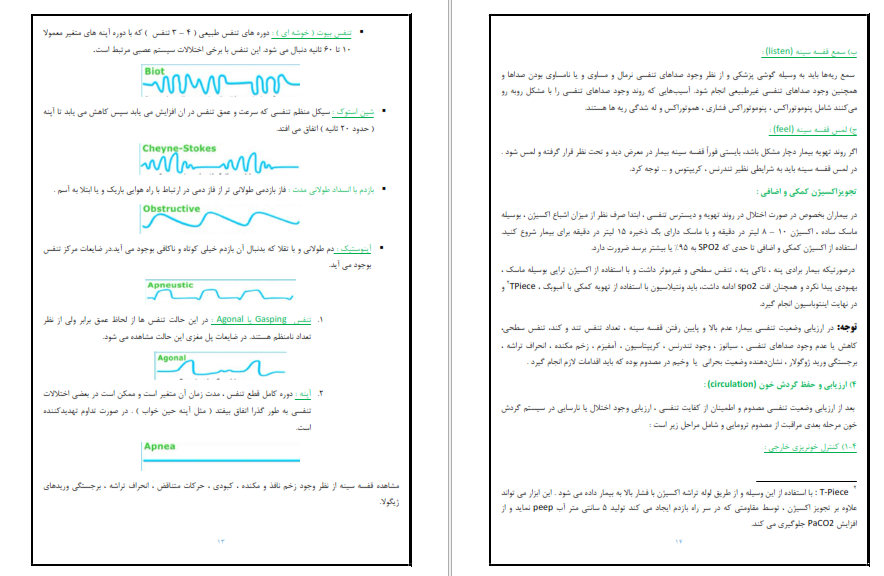 ▪ تنفس بیوت ( خوشه ای ) : دوره های تنفس طبیعی ( ۴ – ۳ تنفس ) که با دوره آپنه های متغیر معمولا
۱۰ تا ۶۰ ثانیه دنبال می شود. این تنفس با برخی اختلالات سیستم عصبی مرتبط است.
Biot
▪ شین استوک : سیکل منظم تنفسی که سرعت و عمق تنفس در ان افزایش می یابد سپس کاهش می یابد تا آپنه
( حدود ۲۰ ثانیه ) اتفاق می افتد.
Cheyne-Stokes
▪ بازدم با انسداد طولانی مدت : فاز بازدمی طولانی تر از فاز دمی در ارتباط با راه هوایی باریک و یا ابتلا به آسم .
Obstructive
▪ آپنوستیک : دم طولانی و با تقلا که بدنبال آن بازدم خیلی کوتاه و ناکافی بوجود می آید.در ضایعات مرکز تنفس
بوجود می آید.
Apneustic
۱. تنفس Gasping یا Agonal : در این حالت تنفس ها از لحاظ عمق برابر ولی از نظر
تعداد نامنظم هستند. در ضایعات پل مغزی این حالت مشاهده می شود.
Agonal
۲. آپنه : دوره کامل قطع تنفس ، مدت زمان آن متغیر است و ممکن است در بعضی اختلالات
تنفسی به طور گذرا اتفاق بیفتد ( مثل آپنه حین خواب ) . در صورت تداوم تهدیدکننده
است.
Apnea
مشاهده قفسه سینه از نظر وجود زخم نافذ و مکنده ، کبودی ، حرکات متناقض ، انحراف تراشه ، برجستگی وریدهای
ژیگولا.
۱۳
ب) سمع قفسه سینه (listen) :
سمع ریه‌ها باید به وسیله گوشی پزشکی و از نظر وجود صداهای تنفسی نرمال و مساوی و یا نامساوی بودن صداها و
همچنین وجود صداهای تنفسی غیرطبیعی انجام شود. آسیب‌هایی که روند وجود صداهای تنفسی را با مشکل روبه رو
می‌کنند شامل پنوموتوراکس ، پنوموتوراکس فشاری ، هموتوراکس و له شدگی ریه ها هستند.
ج) لمس قفسه سینه (feel) :
اگر روند تهویه بیمار دچار مشکل باشد، بایستی فوراً قفسه سینه بیمار در معرض دید و تحت نظر قرار گرفته و لمس شود .
در لمس قفسه سینه باید به شرایطی نظیر تندرنس ، کریپتوس و ... توجه کرد.
تجویزاکسیژن کمکی و اضافی :
در بیماران بخصوص در صورت اختلال در روند تهویه و دیسترس تنفسی ، ابتدا صرف نظر از میزان اشباع اکسیژن ، بوسیله
ماسک ساده ، اکسیژن ۱۰ – ۸ لیتر در دقیقه و با ماسک دارای بگ ذخیره ۱۵ لیتر در دقیقه برای بیمار شروع کنید.
استفاده از اکسیژن کمکی و اضافی تا حدی که SPO2 به ۹۵٪ یا بیشتر برسد ضرورت دارد.
درصورتیکه بیمار برادی پنه ، تاکی پنه ، تنفس سطحی و غیرموثر داشت و با استفاده از اکسیژن تراپی بوسیله ماسک ،
بهبودی پیدا نکرد و همچنان افت spo2 ادامه داشت، باید ونتیلاسیون با استفاده از تهویه کمکی با آمبوبگ ، TPiece۲ و
در نهایت اینتوباسیون انجام گیرد.
توجه: در ارزیابی وضعیت تنفسی بیمار؛ عدم بالا و پایین رفتن قفسه سینه ، تعداد تنفس تند و کند، تنفس سطحی،
کاهش یا عدم وجود صداهای تنفسی ، سیانوز ، وجود تندرنس ، کریپتاسیون ، آمفیزم ، زخم مکنده ، انحراف تراشه ،
برجستگی ورید ژوگولار ، نشان‌دهنده وضعیت بحرانی یا وخیم در مصدوم بوده که باید اقدامات لازم انجام گیرد .
۴) ارزیابی و حفظ گردش خون (circulation) :
بعد از ارزیابی وضعیت تنفسی مصدوم و اطمینان از کفایت تنفسی ، ارزیابی وجود اختلال یا نارسایی در سیستم گردش
خون مرحله بعدی مراقبت از مصدوم ترومایی و شامل مراحل زیر است :
۴-۱) کنترل خونریزی خارجی :
۲ T-Piece : با استفاده از این وسیله و از طریق لوله تراشه اکسیژن با فشار بالا به بیمار داده می شود . این ابزار می تواند
علاوه بر تجویز اکسیژن ، توسط مقاومتی که در سر راه بازدم ایجاد می کند تولید ۵ سانتی متر آب peep نماید و از
افزایش PaCO2 جلوگیری می کند.
۱۴